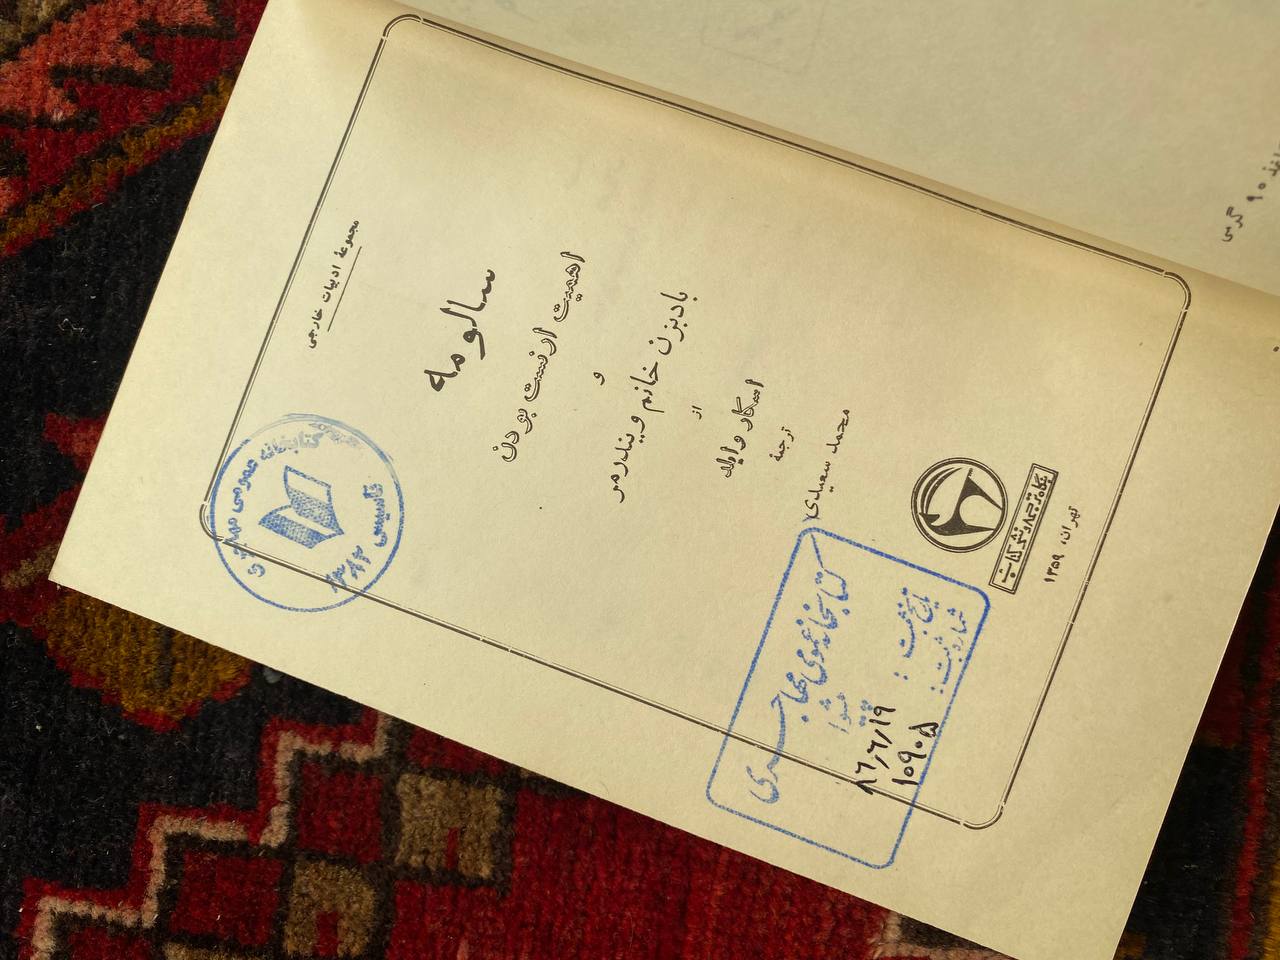 مجموعهٔ ادبیات خارجی
سالومه
اهمیت ارنست بودن
و
بادبزن خانم ویندرمر
از
اسکار وایلد
ترجمهٔ
محمد سعیدی
بنگاه ترجمه و نشر کتاب
تهران، ۱۳۵۹
کتابخانه عمومی مهاجری
تأسیس ۱۳۸۲
کتابخانه عمومی مهاجری
تاریخ ثبت: ۸۶٫۶٫۱۹
شماره ثبت: ۱۰۹۰۵
۹۰ گرمی